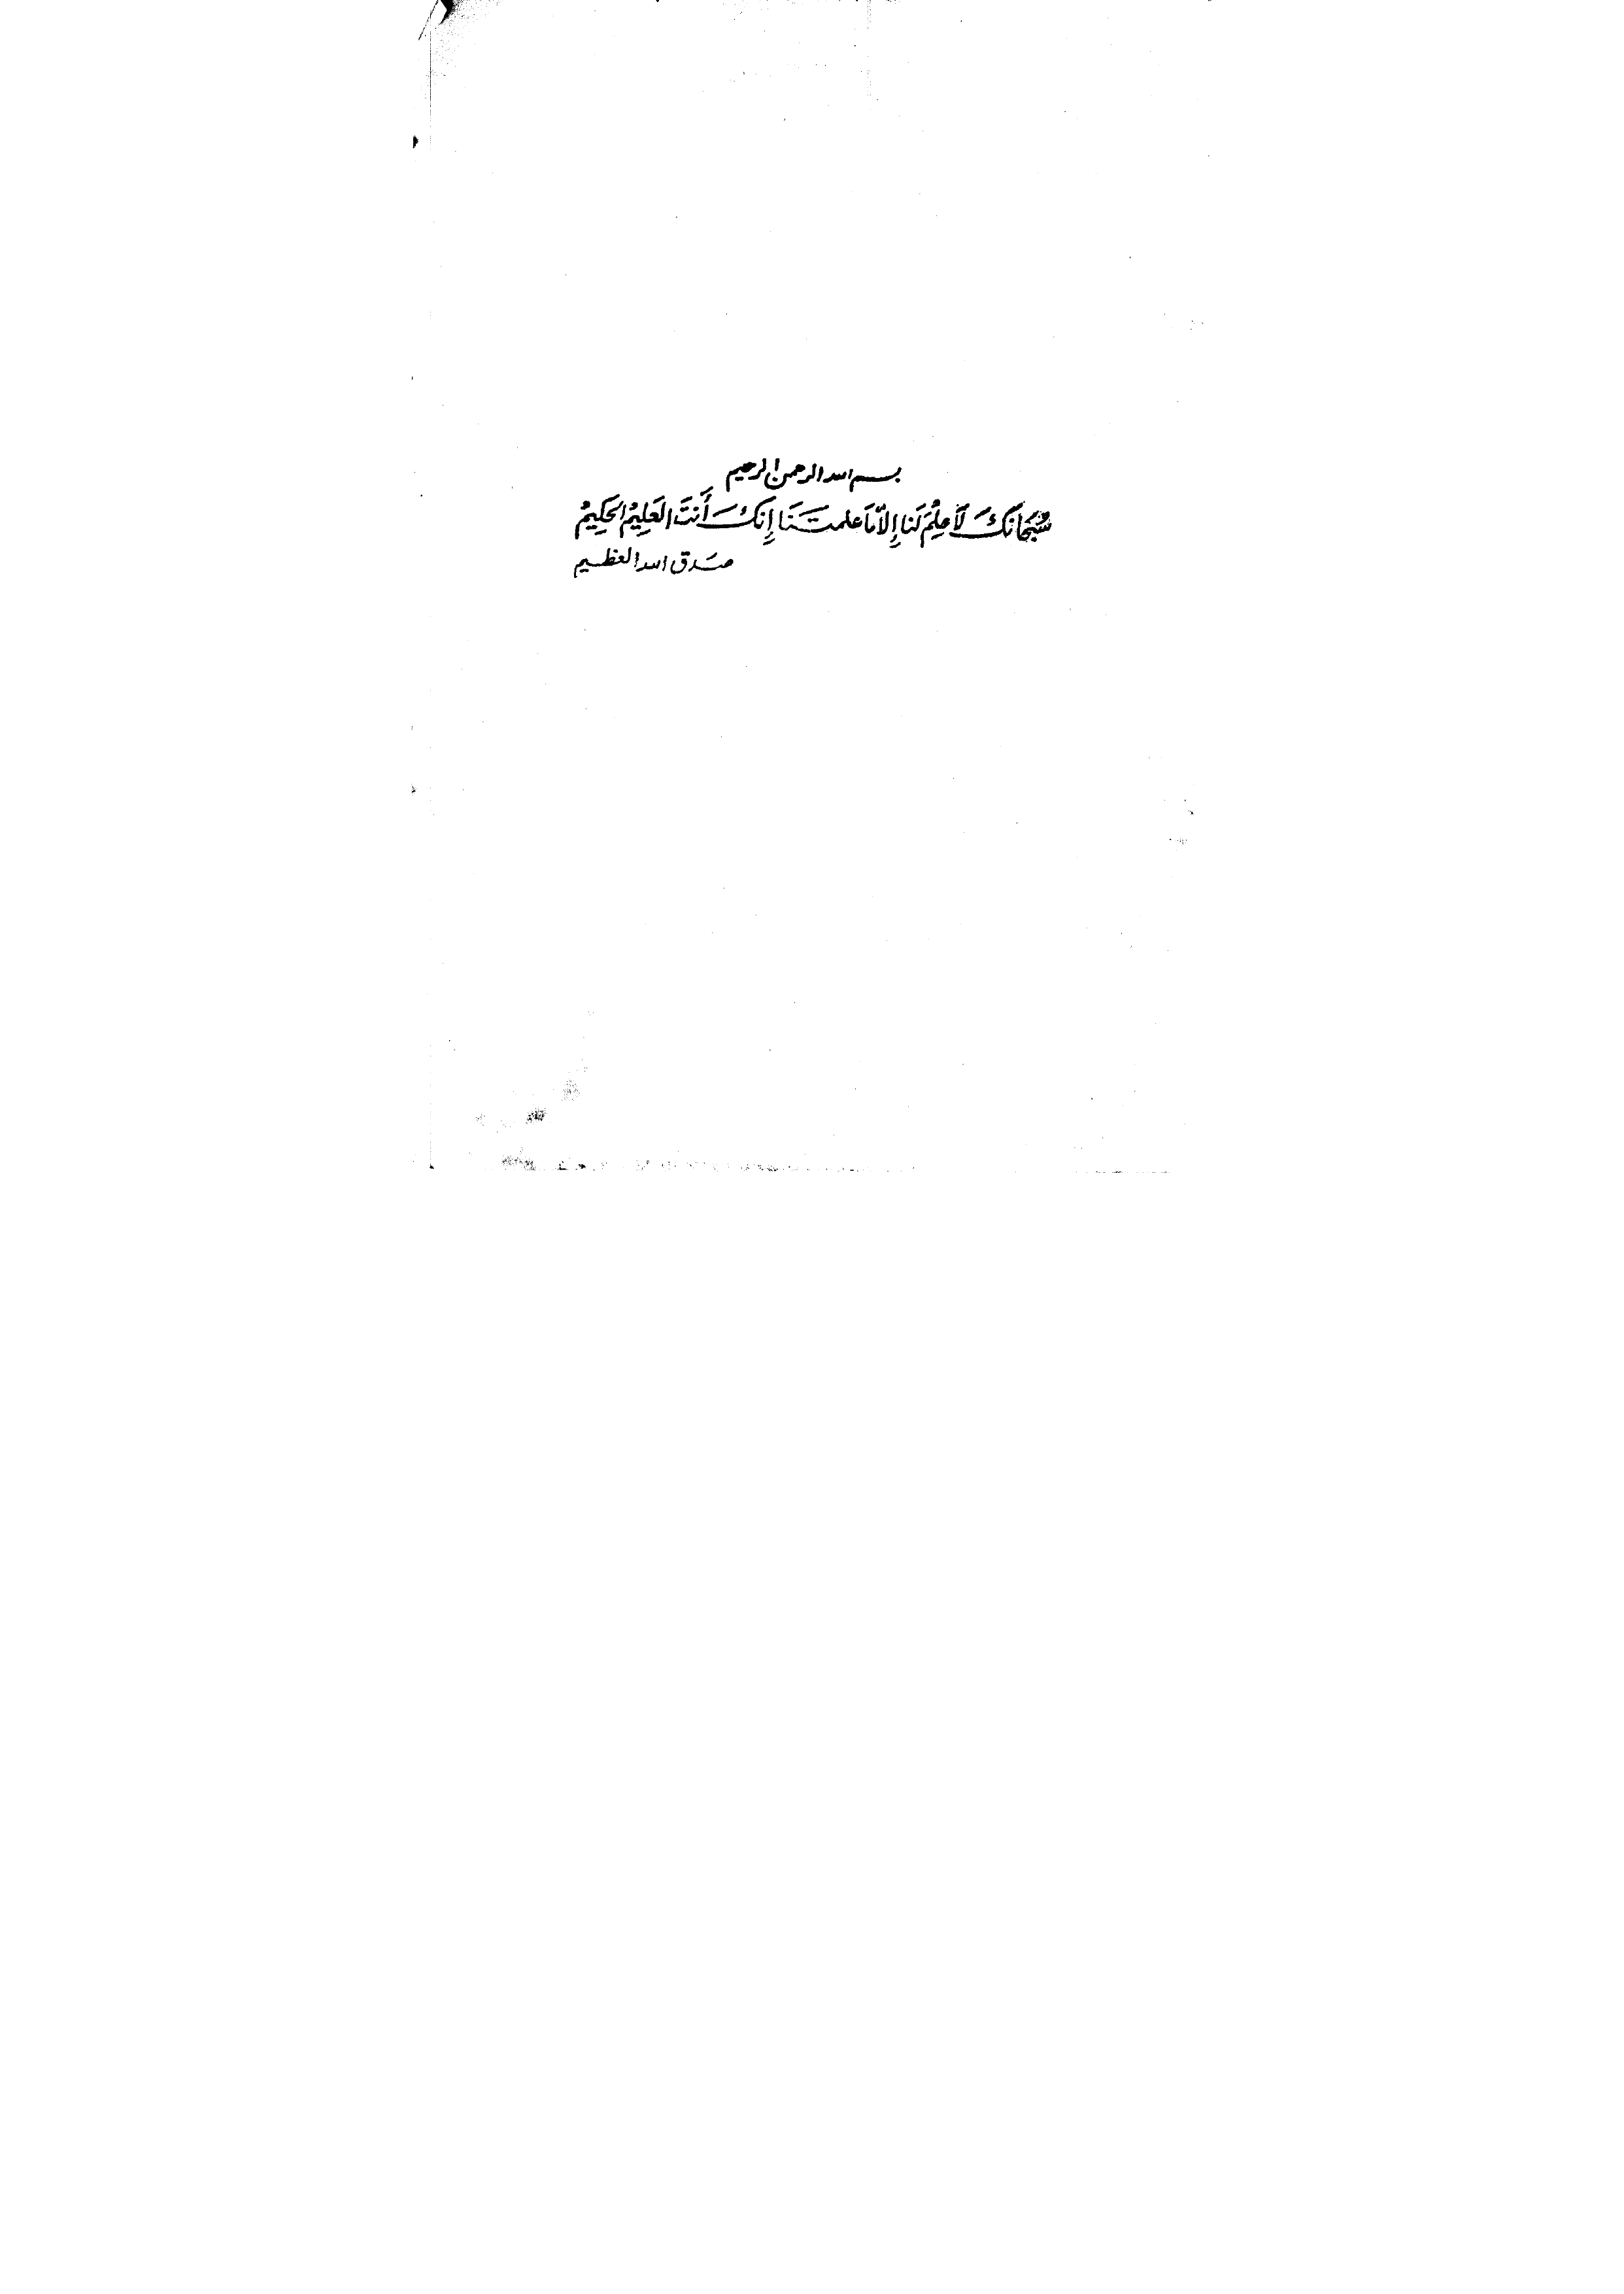 بسم الله الرحمن الرحيم
سُبْحَانَكَ لَا عِلْمَ لَنَا إِلَّا مَا علمتَنَا إِنَّكَ أَنتَ العَلِيمُ الحَكِيمُ
صَدق الله العظيم